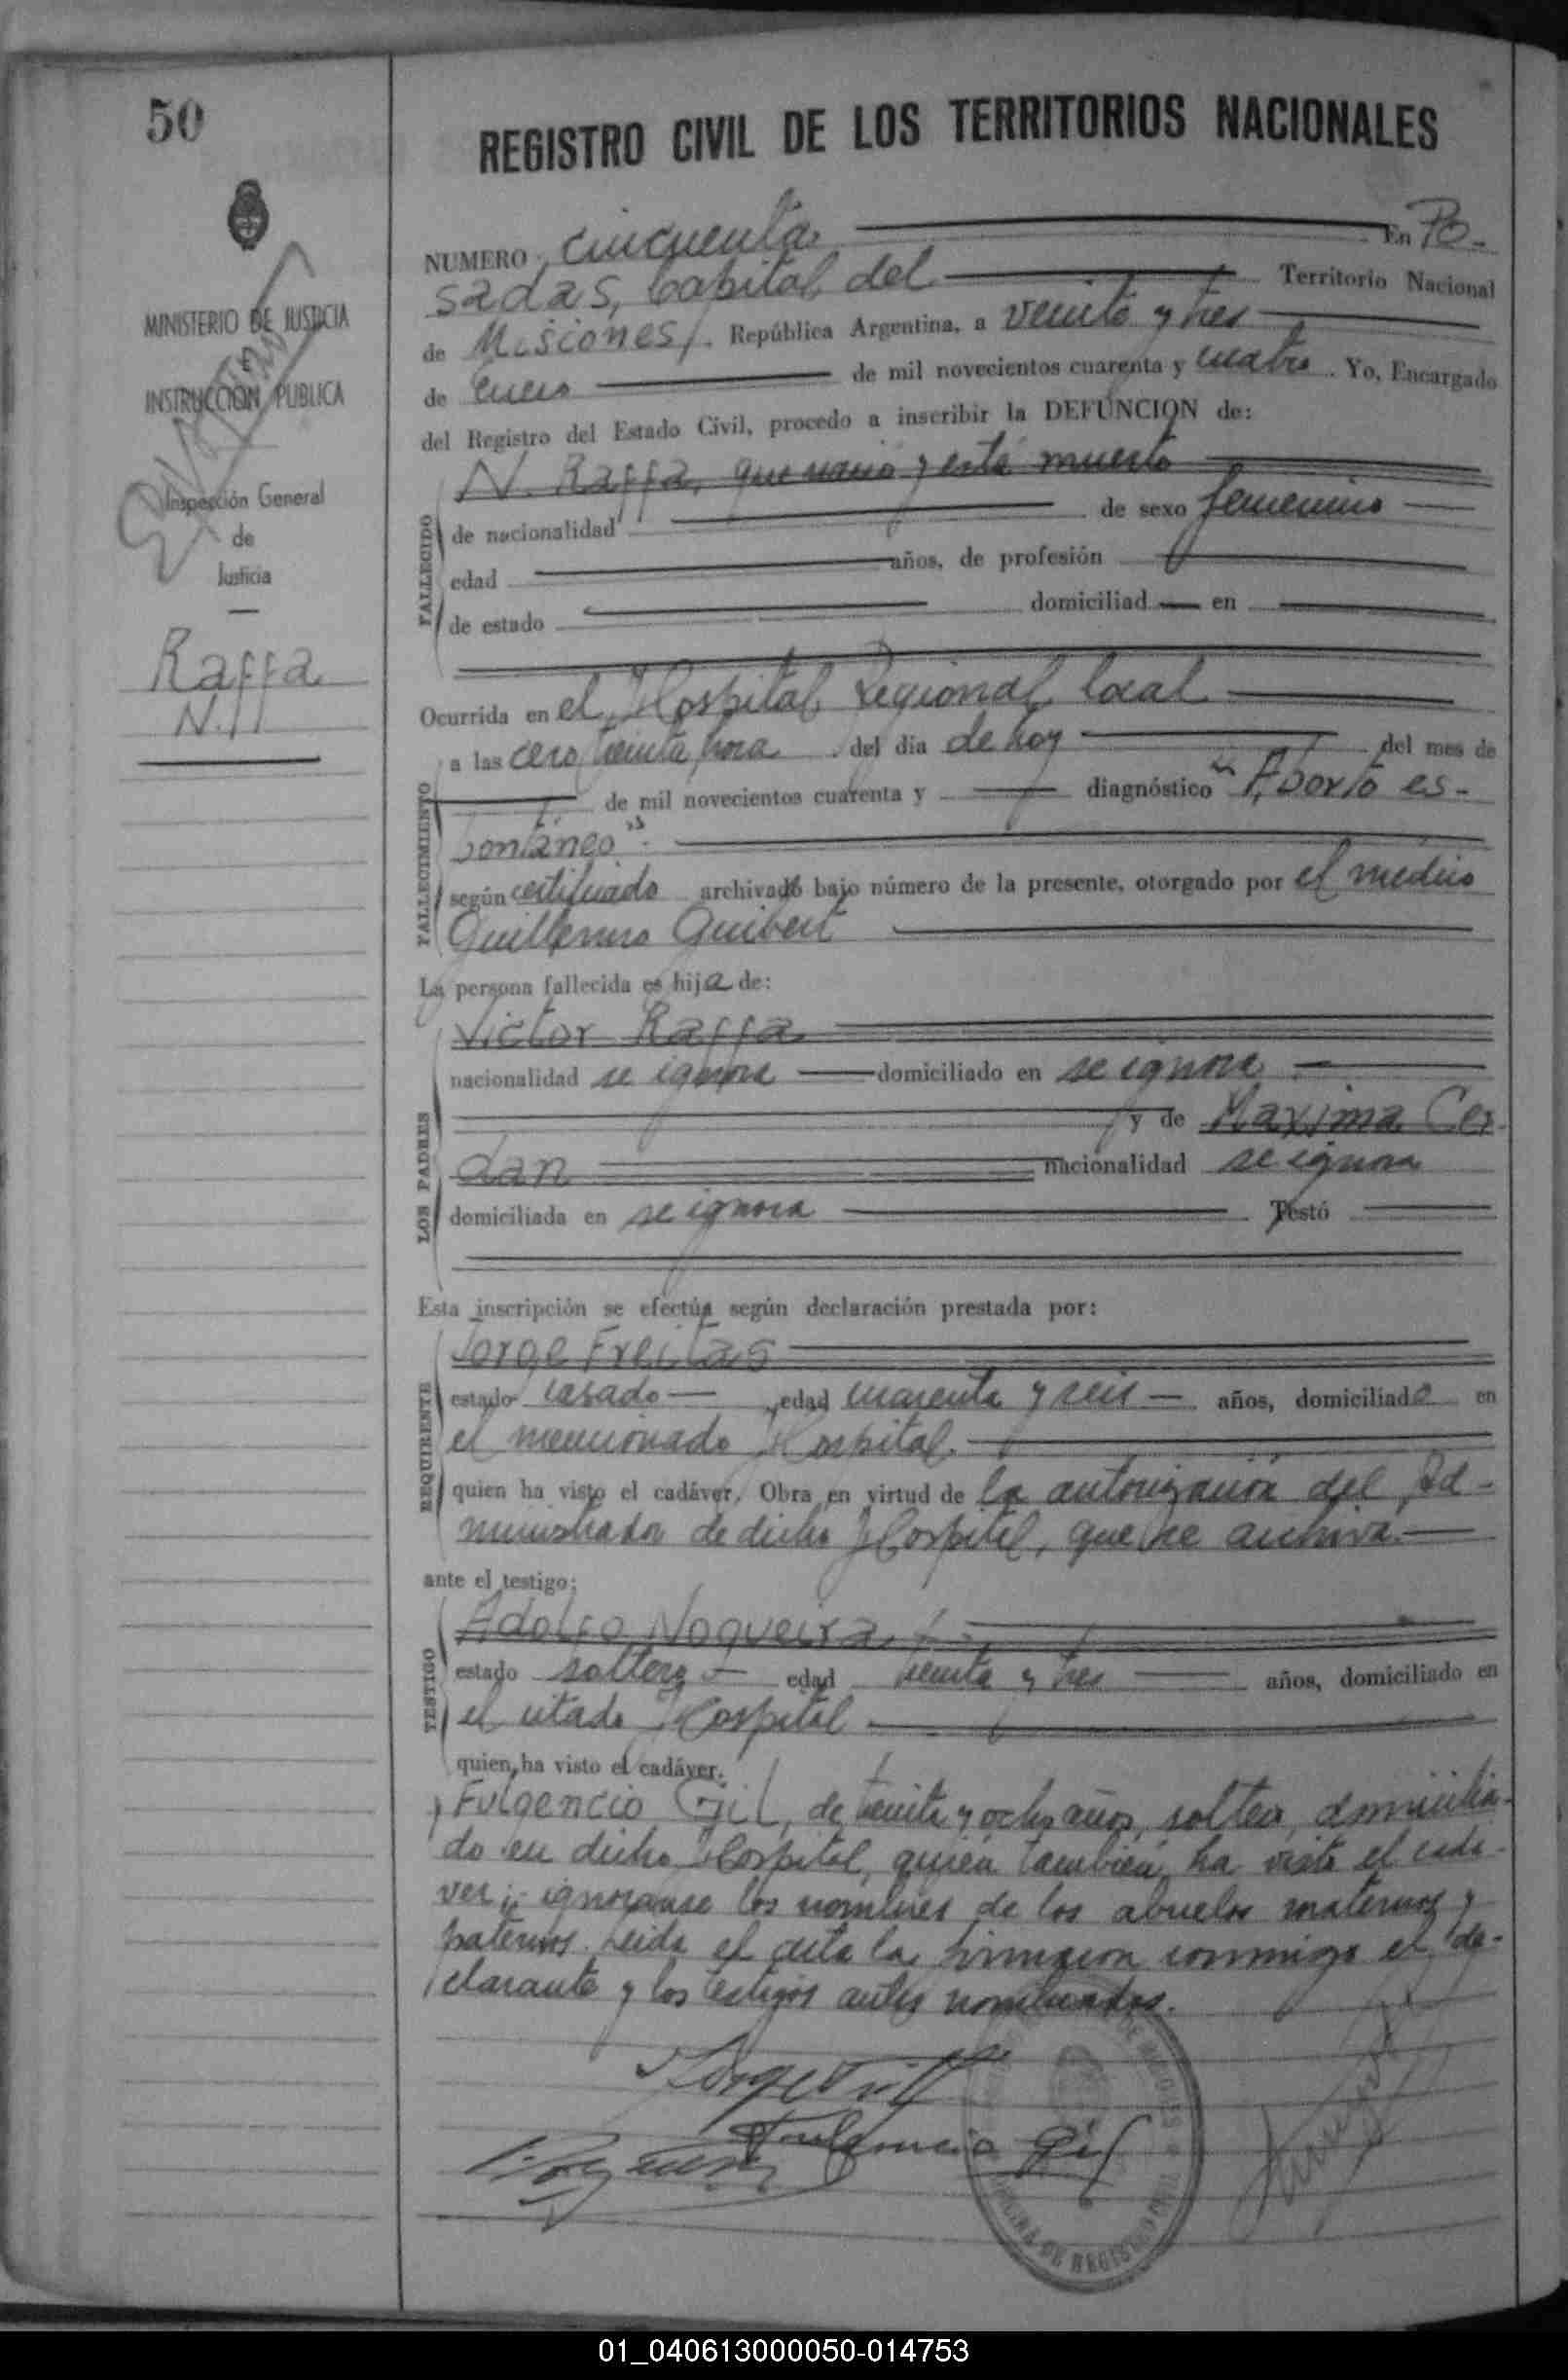 50
REGISTRO CIVIL DE LOS TERRITORIOS NACIONALES
NUMERO cincuenta En Po-
sadas, Capital del Territorio Nacional
MINISTERIO DE JUSTICIA
de Misiones, República Argentina, a veinte y tres
INSTRUCCION PUBLICA
de Enero de mil novecientos cuarenta y cuatro. Yo, Encargado
del Registro del Estado Civil, procedo a inscribir la DEFUNCION de:
N. Raffa, que nació y está muerto
Inspección General
de
Justicia
FALLECIDO
de nacionalidad de sexo femenino
edad años, de profesión
de estado domiciliad en
Raffa
N.
Ocurrida en el Hospital Regional local
a las cero treinta hora del día de hoy del mes de
FALLECIMIENTO
de mil novecientos cuarenta y diagnóstico "Aborto es-
pontáneo".
según certificado archivado bajo número de la presente, otorgado por el médico
Guillermo Guibert
La persona fallecida es hija de:
LOS PADRES
Victor Raffa
nacionalidad se ignora domiciliado en se ignora
y de Maxima Cer-
dan nacionalidad se ignora
domiciliada en se ignora Testó
Esta inscripción se efectúa según declaración prestada por:
REQUIRENTE
Jorge Freitas
estado casado edad cuarenta y seis años, domiciliado en
el mencionado Hospital.
quien ha visto el cadáver. Obra en virtud de la autorización del Ad-
ministrador de dicho Hospital, que se archiva.
ante el testigo:
TESTIGO
Adolfo Nogueira
estado soltero edad treinta y tres años, domiciliado en
el citado Hospital
quien ha visto el cadáver.
y Fulgencio Gil, de treinta y ocho años, soltero, domicilia-
do en dicho Hospital, quién también ha visto el cadá-
ver; ignoranse los nombres de los abuelos maternos y
paternos. Leida el acta la firmaron conmigo el de-
clarante y los testigos antes nombrados.
Fulgencio Gil
01_040613000050-014753